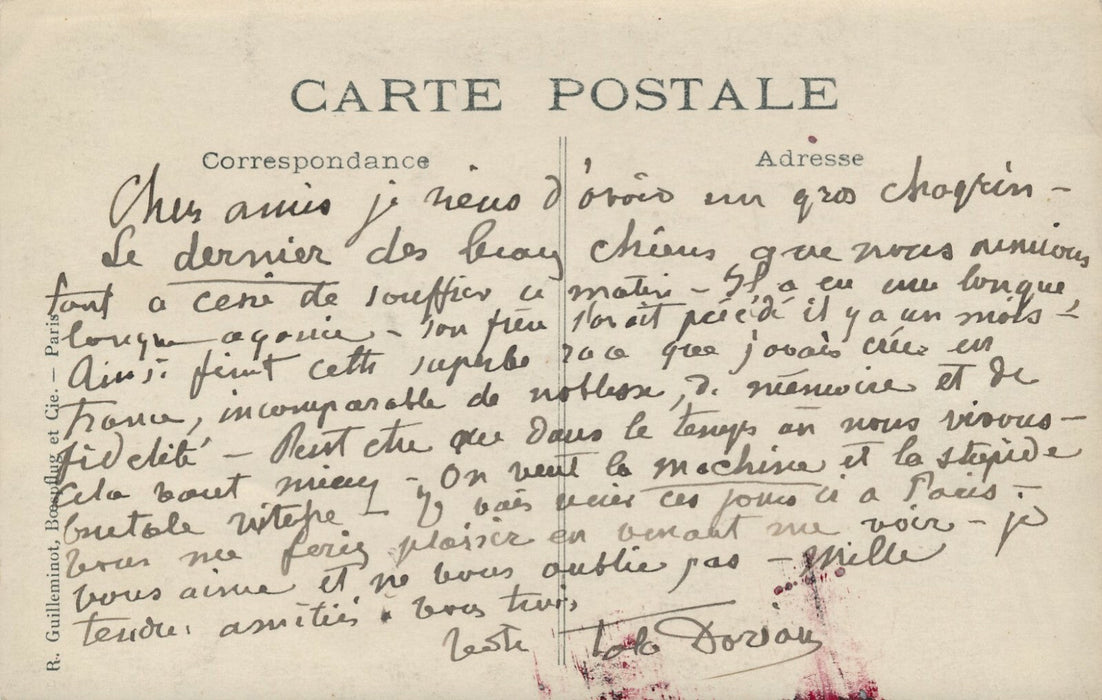 CARTE POSTALE
Correspondance
Adresse
Chers amis je viens d'avoir un gros chagrin -
Le dernier des beaux chiens que nous aimions
tant a cessé de souffrir ce matin - Il a eu une longue,
longue agonie - son frère l'avait précédé il y a un mois -
Ainsi finit cette superbe race que j'avais créée en
France, incomparable de noblesse, de mémoire et de
fidélité - Peut etre que dans le temps où nous vivons -
cela vaut mieux - On veut la machine et la stupide
brutale vitesse - Je vais venir ces jours ci a Paris -
vous me feriez plaisir en venant me voir - je
vous aime et ne vous oublie pas - Mille
tendres amitiés à vous trois
Votre Tola Dorian
R. Guilleminot, Bœspflug et Cie. - Paris